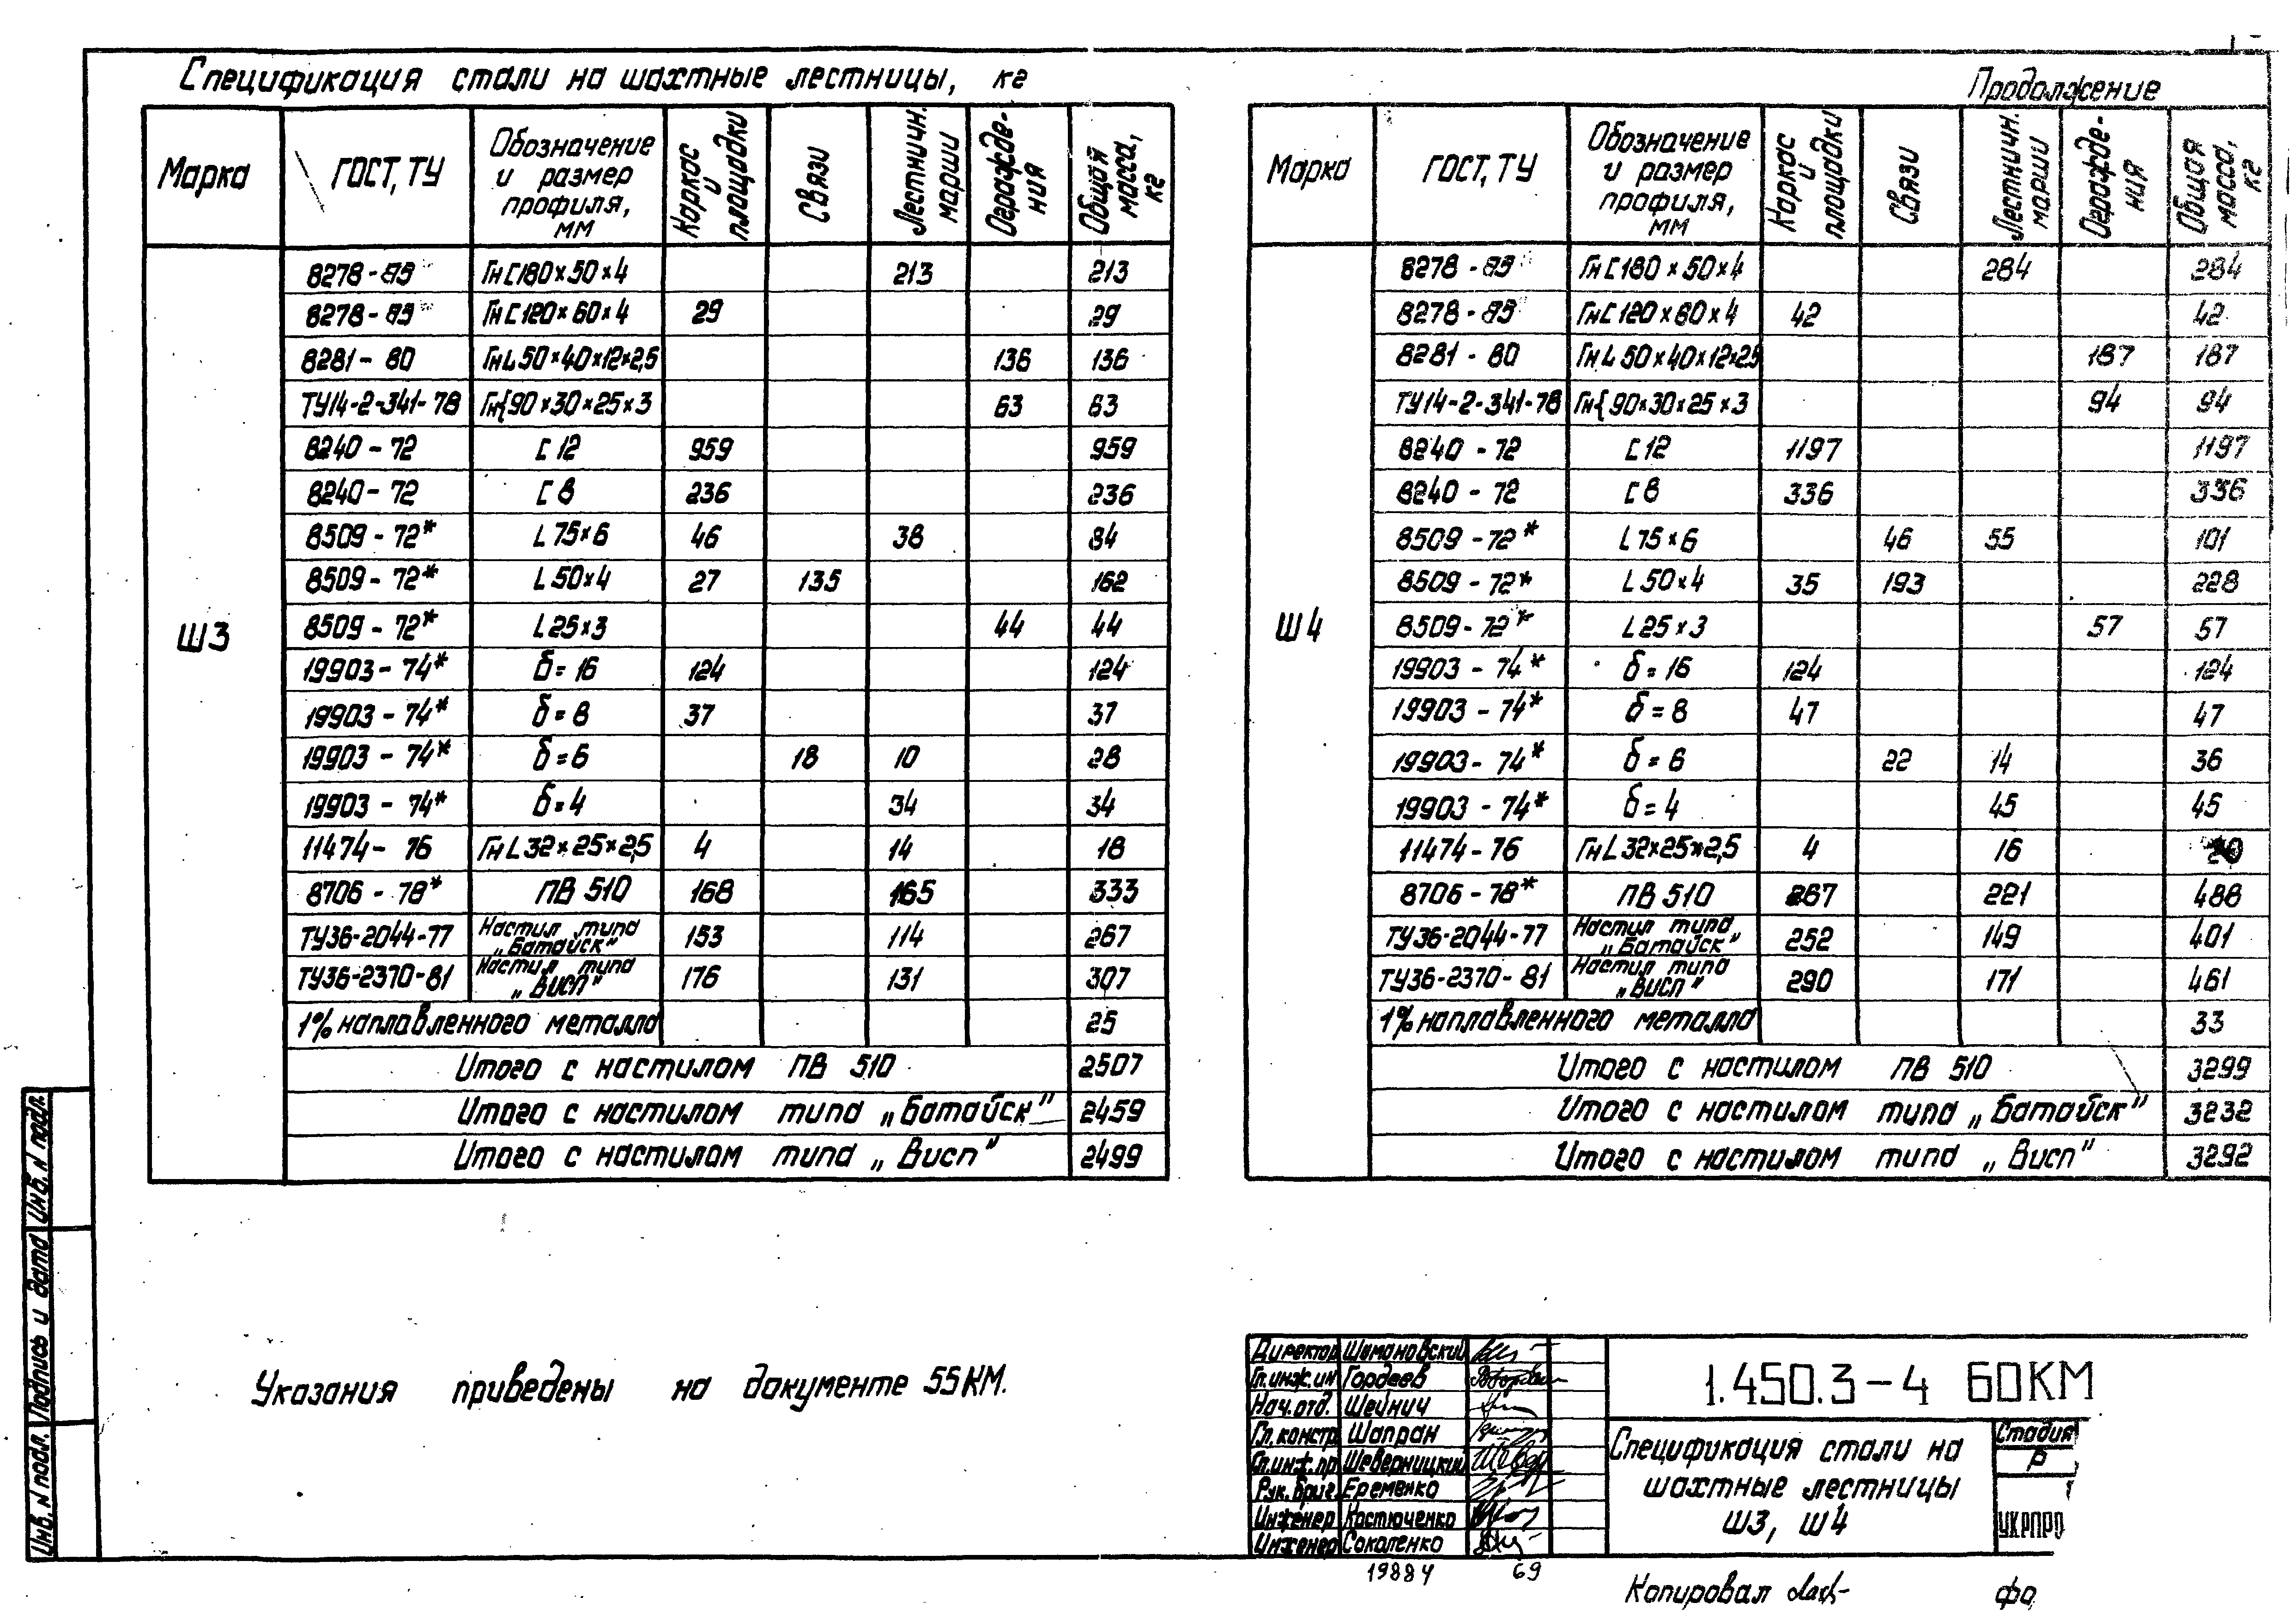 Спецификация стали на шахтные лестницы, кг
Марка | ГОСТ, ТУ | Обозначение и размер профиля, мм | Каркас и площадки | Связи | Лестничн. марши | Огражде-ния | Общая масса, кг
Ш3
8278 - 83 | Гн [180×50×4 | 213 | 213
8278 - 83 | Гн [120×60×4 | 29 | 29
8281 - 80 | Гн L 50×40×12×2,5 | 136 | 136
ТУ14-2-341-78 | Гн{90×30×25×3 | 63 | 63
8240 - 72 | [ 12 | 959 | 959
8240 - 72 | [ 8 | 236 | 236
8509 - 72* | L 75×6 | 46 | 38 | 84
8509 - 72* | L 50×4 | 27 | 135 | 162
8509 - 72* | L 25×3 | 44 | 44
19903 - 74* | δ = 16 | 124 | 124
19903 - 74* | δ = 8 | 37 | 37
19903 - 74* | δ = 6 | 18 | 10 | 28
19903 - 74* | δ = 4 | 34 | 34
11474 - 76 | Гн L 32×25×2,5 | 4 | 14 | 18
8706 - 78* | ПВ 510 | 168 | 165 | 333
ТУ36-2044-77 | Настил типа „Батайск" | 153 | 114 | 267
ТУ36-2370-81 | Настил типа „Висп" | 176 | 131 | 307
1% наплавленного металла | 25
Итого с настилом ПВ 510 | 2507
Итого с настилом типа „Батайск" | 2459
Итого с настилом типа „Висп" | 2499
Продолжение
Марка | ГОСТ, ТУ | Обозначение и размер профиля, мм | Каркас и площадки | Связи | Лестничн. марши | Огражде-ния | Общая масса, кг
Ш4
8278 - 83 | Гн [180×50×4 | 284 | 284
8278 - 83 | Гн [120×60×4 | 42 | 42
8281 - 80 | Гн L 50×40×12×2,5 | 187 | 187
ТУ14-2-341-78 | Гн{90×30×25×3 | 94 | 94
8240 - 72 | [ 12 | 1197 | 1197
8240 - 72 | [ 8 | 336 | 336
8509 - 72* | L 75×6 | 46 | 55 | 101
8509 - 72* | L 50×4 | 35 | 193 | 228
8509 - 72* | L 25×3 | 57 | 57
19903 - 74* | δ = 16 | 124 | 124
19903 - 74* | δ = 8 | 47 | 47
19903 - 74* | δ = 6 | 22 | 14 | 36
19903 - 74* | δ = 4 | 45 | 45
11474 - 76 | Гн L 32×25×2,5 | 4 | 16 | 20
8706 - 78* | ПВ 510 | 267 | 221 | 488
ТУ36-2044-77 | Настил типа „Батайск" | 252 | 149 | 401
ТУ36-2370-81 | Настил типа „Висп" | 290 | 171 | 461
1% наплавленного металла | 33
Итого с настилом ПВ 510 | 3299
Итого с настилом типа „Батайск" | 3232
Итого с настилом типа „Висп" | 3292
Указания приведены на документе 55КМ.
Инв. N подл. | Подпись и дата | Инв. N подл.
Директор Шимановский
Гл. инж. ин Гордеев
Нач. отд. Шейнич
Гл. констр. Шапран
Гл. инж. пр. Шеверницкий
Рук. бриг. Еременко
Инженер Костюченко
Инженер Соколенко
1.450.3-4 60КМ
Спецификация стали на
шахтные лестницы
Ш3, Ш4
Стадия
Р
УКРПРО
19884 69
Копировал
фо